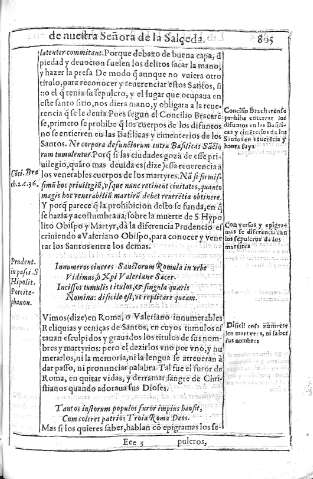 de nuestra Señora de la Salceda.
805
latenter committant. Porque debaxo de buena capa, d̃
piedad y deuocion suelen los delitos sacar la mano,
y hazer la presa De modo q̃ aunque no vuiera otro
titulo, para reconocer y reuerenciar estos Santos, si
no el q̃ tenia su sepulcro, y el lugar que ocupaua en
este santo sitio, nos diera mano, y obligara a la reue-
rencia q̃ se le deuia Pues segun el Concilio Bracarẽ-
se, primero se prohibe q̃ los cuerpos de los difuntos
no se entierren en las Basilicas y ciminterios de los
Santos. Ne corpora defunctorum intra Basilicas Sãcto-
rum tumulentur. Porq̃ si las ciudades goza de este pri-
uilegio, quãto mas deuida es (dize) esta reuerencia a
los venerables cuerpos de los martyres. Nã si firmis-
simũ hoc priuilegiũ, vsque nunc retinent ciuitates, quanto
magis hoc venerabiliũ martirũ debet reuerẽtia obtinere.
Y porq̃ parece q̃ la prohibicion desto se funda, en q̃
se hazia y acostumbraua, sobre la muerte de S Hypo
lito Obispo y Martyr, dà la diferencia Prudencio es
criuiendo a Valeriano Obispo, para conocer y vene
rar los Santos entre los demas.
Concilio Bracarense
prohibe enterrar los
difuntos en las Basili-
cas y
Santos
Cõci. Bra
Con versos y epigra-
mas se diferenciauan
los sepulcros de los
martires
Prudent.
in passi. S
Hipolit.
Innumeros cineres Sanctorum Romula in vrbe
Vidimus, ô Xp̃i Valeriane Sacer.
Incissos tumulis titulos, & singula quæris
Nomina: dificile est, vt replicare queam.
Vimos (dize) en Roma, o Valeriano innumerables
Reliquias y cenizas de Santos, en cuyos tumulos es
tauan esculpidos y grauados los titulos de sus nom-
bres y martyrios: pero el dezirlos vno por vno, y nu
merarlos, ni la memoria, ni la lengua se atreueran a
dar passo, ni pronunciar palabra. Tal fue el furor de
Roma, en quitar vidas, y derramar sangre de Chri-
stianos quando adoraua sus Dioses.
Tantos iustorum populos furor impius hausit,
Cum coleret patrios Troia Roma Deos.
Mas si los quieres saber, hablan cõ epigramas los se-
Eee 3
pulcros,